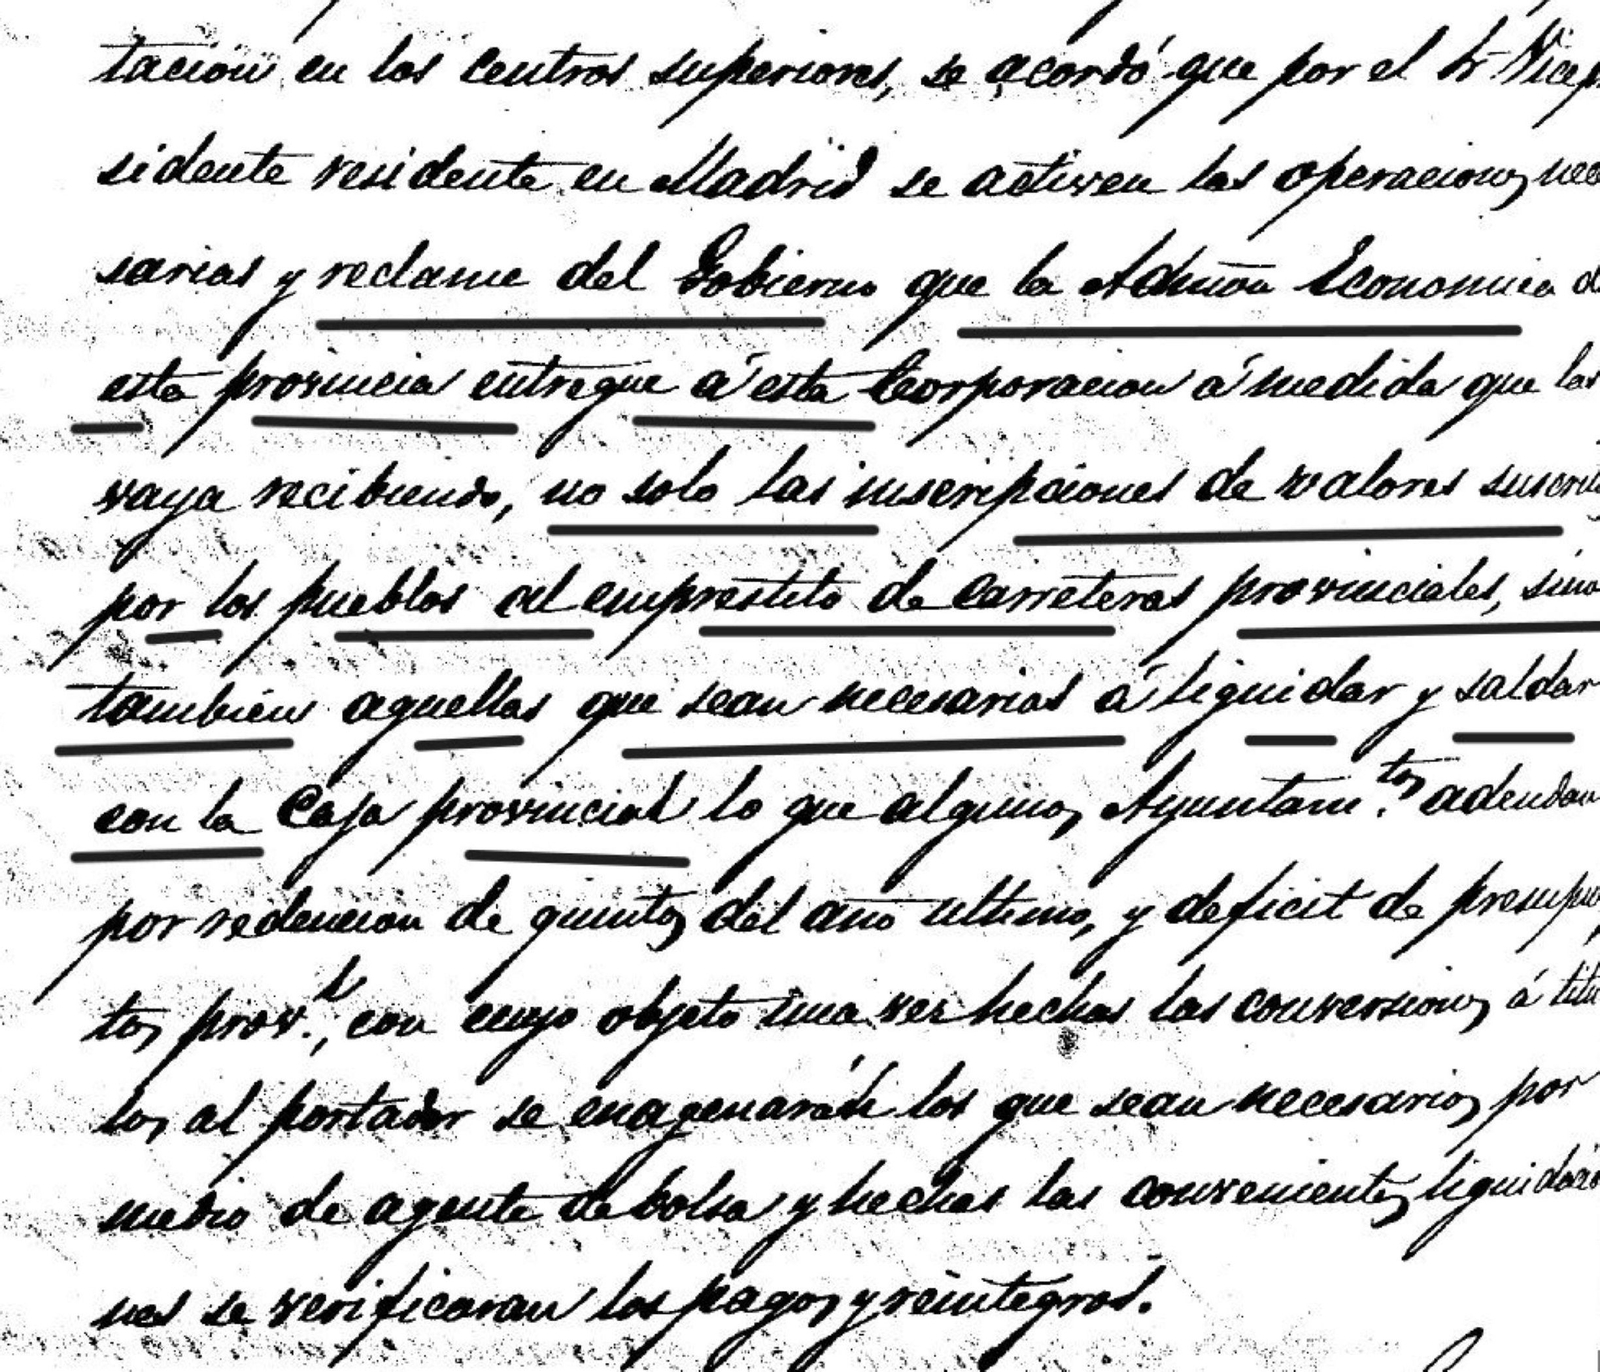 tacion en los centros superiores, se acordó que por el Sr Vicepr
sidente residente en Madrid se activen las operaciones nece
sarias y reclame del Gobierno que la Admon Economica de
esta provincia entregue á esta Corporacion á medida que las
vaya recibiendo, no solo las inscripciones de valores suscrito
por los pueblos al emprestito de Carreteras provinciales, sino
tambien aquellas que sean necesarias á liquidar y saldar
con la Caja provincial lo que algunos Ayuntam.tos adeudan
por redencion de quintos del año ultimo, y deficit de presupues
tos prov.l, con cuyo objeto una vez hechas las conversiones á titu
los al portador se enagenarán los que sean necesarios por
medio de agente de bolsa y hechas las convenientes liquidacio
nes se verificaran los pagos y reintegros.